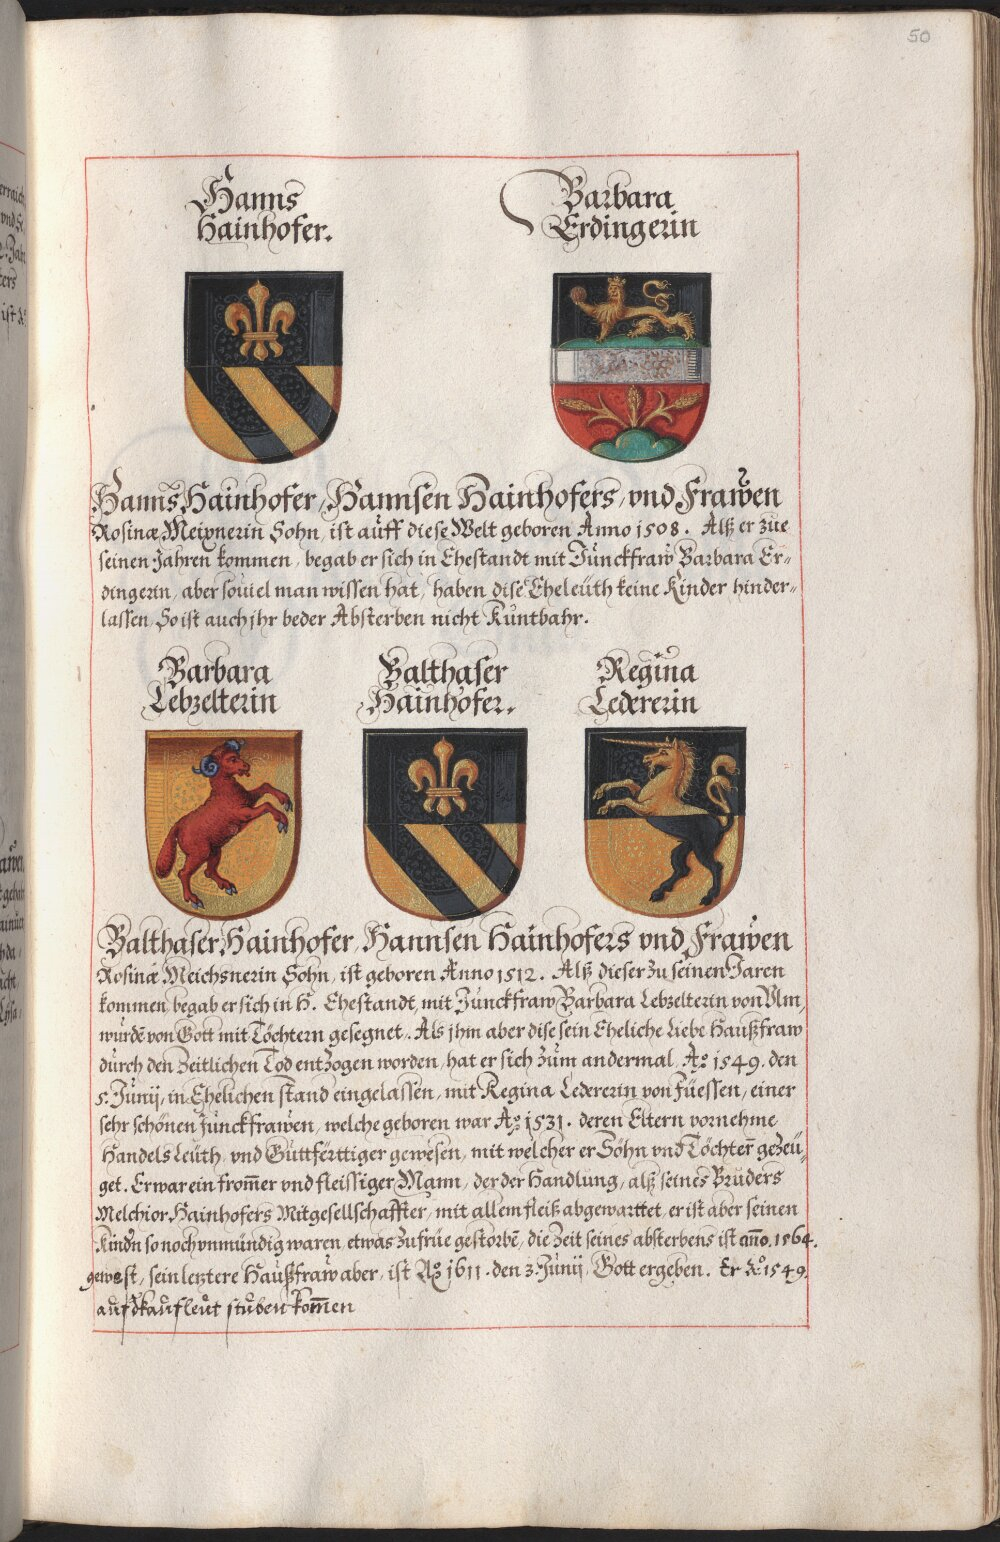 50
Hanns
Hainhofer.
Barbara
Erdingerin
Hanns Hainhofer, Hannsen Hainhofers, vnd Frawen
Rosinæ Meixnerin Sohn, ist auff diese Welt geboren Anno 1508. Alß er zue
seinen Jahren kommen, begab er sich in Ehestandt mit Junckfraw Barbara Er-
dingerin, aber souiel man wissen hat, haben dise Eheleuth keine Kinder hinder-
lassen, So ist auch jhr beder Absterben nicht Kuntbahr.
Barbara
Lebzelterin
Balthaser
Hainhofer.
Regina
Ledererin
Balthaser Hainhofer, Hannsen Hainhofers vnd Frawen
Rosinæ Meichsnerin Sohn, ist geboren Anno 1512. Alß dieser zu seinen Jaren
kommen, begab er sich in H. Ehestandt, mit Junckfraw Barbara Lebzelterin von Vlm,
wurdē von Gott mit Töchtern gesegnet. Als jhm aber dise sein Eheliche Liebe Haußfraw
durch den Zeitlichen Tod entzogen worden, hat er sich zum andermal, Aº 1549. den
5. Junij, in Ehelichen stand eingelassen, mit Regina Ledererin von Füessen, einer
sehr schönen Junckfrawen, welche geboren war Aº 1531. deren Eltern vornehme
Handels Leuth, vnd Guttferttiger gewesen, mit welcher er Söhn vnd Töchter gezeu-
get. Er war ein from̄er vnd fleissiger Mann, der der Handlung, alß seines Bruders
Melchior Hainhofers Mitgesellschaffter, mit allem fleiß abgewarttet, er ist aber seinen
Kindn so noch vnmündig waren, etwas zufrüe gestorbē, die Zeit seines absterbens ist an̄o. 1564.
gewest, sein letztere Haußfraw aber, ist Aº 1611. den 3. Junij, Gott ergeben. Er Aº 1549.
auf d kaufleut stuben kom̄en